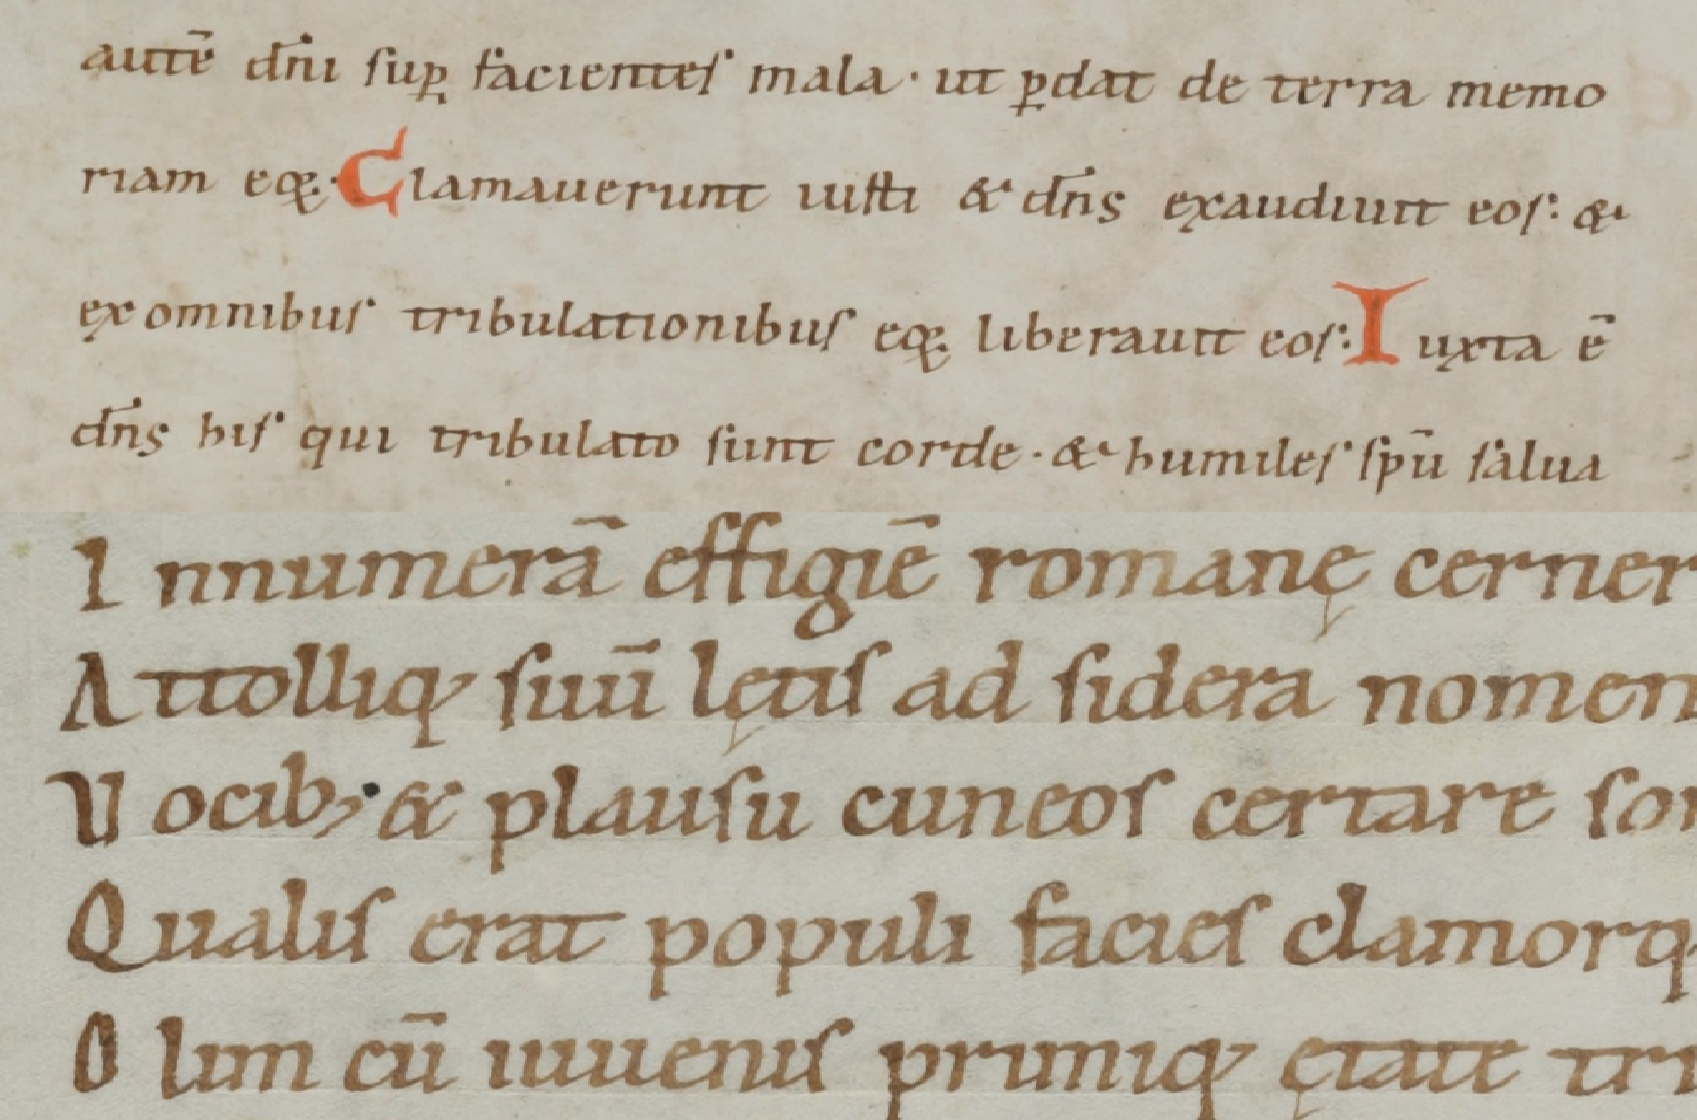 autē dn̄i suꝑ facientes mala · ut ꝑdat de terra memo
riam eoꝝ· Clamauerunt iusti & dn̄s exaudiuit eos: &
ex omnibus tribulationibus eoꝝ liberauit eos: Iuxta ē
dn̄s his qui tribulato sunt corde · & humiles sp̄u salua
Innumerā effigiē romanę cerner
Attolliq; suū lętis ad sidera nomen
Uocib; & plausu cuneos certare so
Qualis erat populi facies clamorq
Olim cū iuuenis primiq; ętate tri